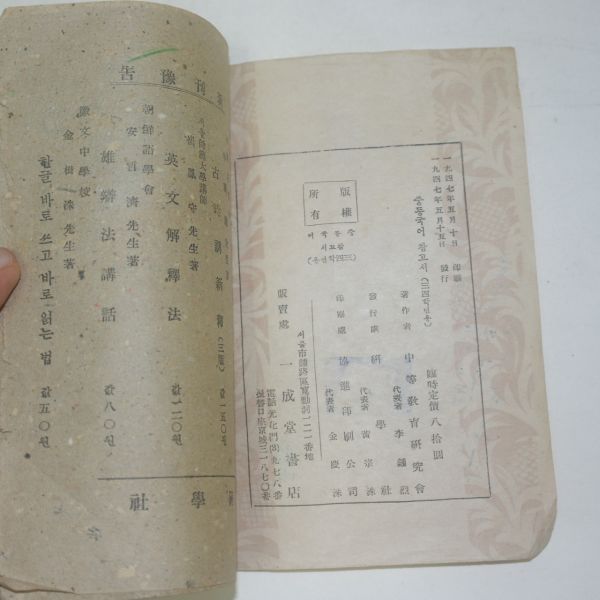 一九四七年五月十日 印刷
一九四七年五月十五日 發行
중등국어 참고서 (三四학년용)
臨時定價 八拾圓
版權
所有
중등국어
참고서
(三四학년용)
著作者 中等敎育硏究會
代表者 李鍾烈
發行處 硏學社
代表者 黃宗洙
印刷處 協進印刷公司
代表者 金慶洙
서울市鍾路區寬勳洞一二一番地
販賣處 一成堂書店
電話光化門(3)九七八番
振替口座京城三一八七〇番
刊豫告
古 新釋 (三版) 값 一五〇원
서울師範大學講師
鳳守 先生著
英文解釋法 값 一二〇원
朝鮮語學會
安 濟 先生著
雄辯法講話 값 八〇원
徽文中學校
金樹洙 先生著
한글 바로 쓰고 바로 읽는 법 값 五〇원
學社